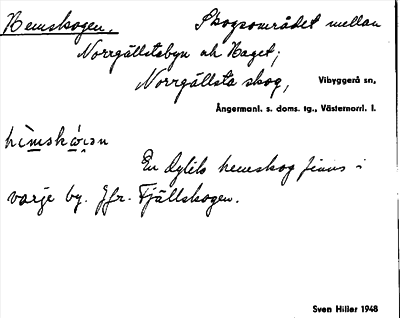 Hemskogen. Skogsområdet mellan
Norrgällstabyn och Haget;
Norrgällsta skog, Vibyggerå sn,
Ångermanl. s. doms. tg., Västernorrl. l.
En dylik hemskog finns i
varje by. Jfr. Fjällskogen.
Sven Hiller 1948